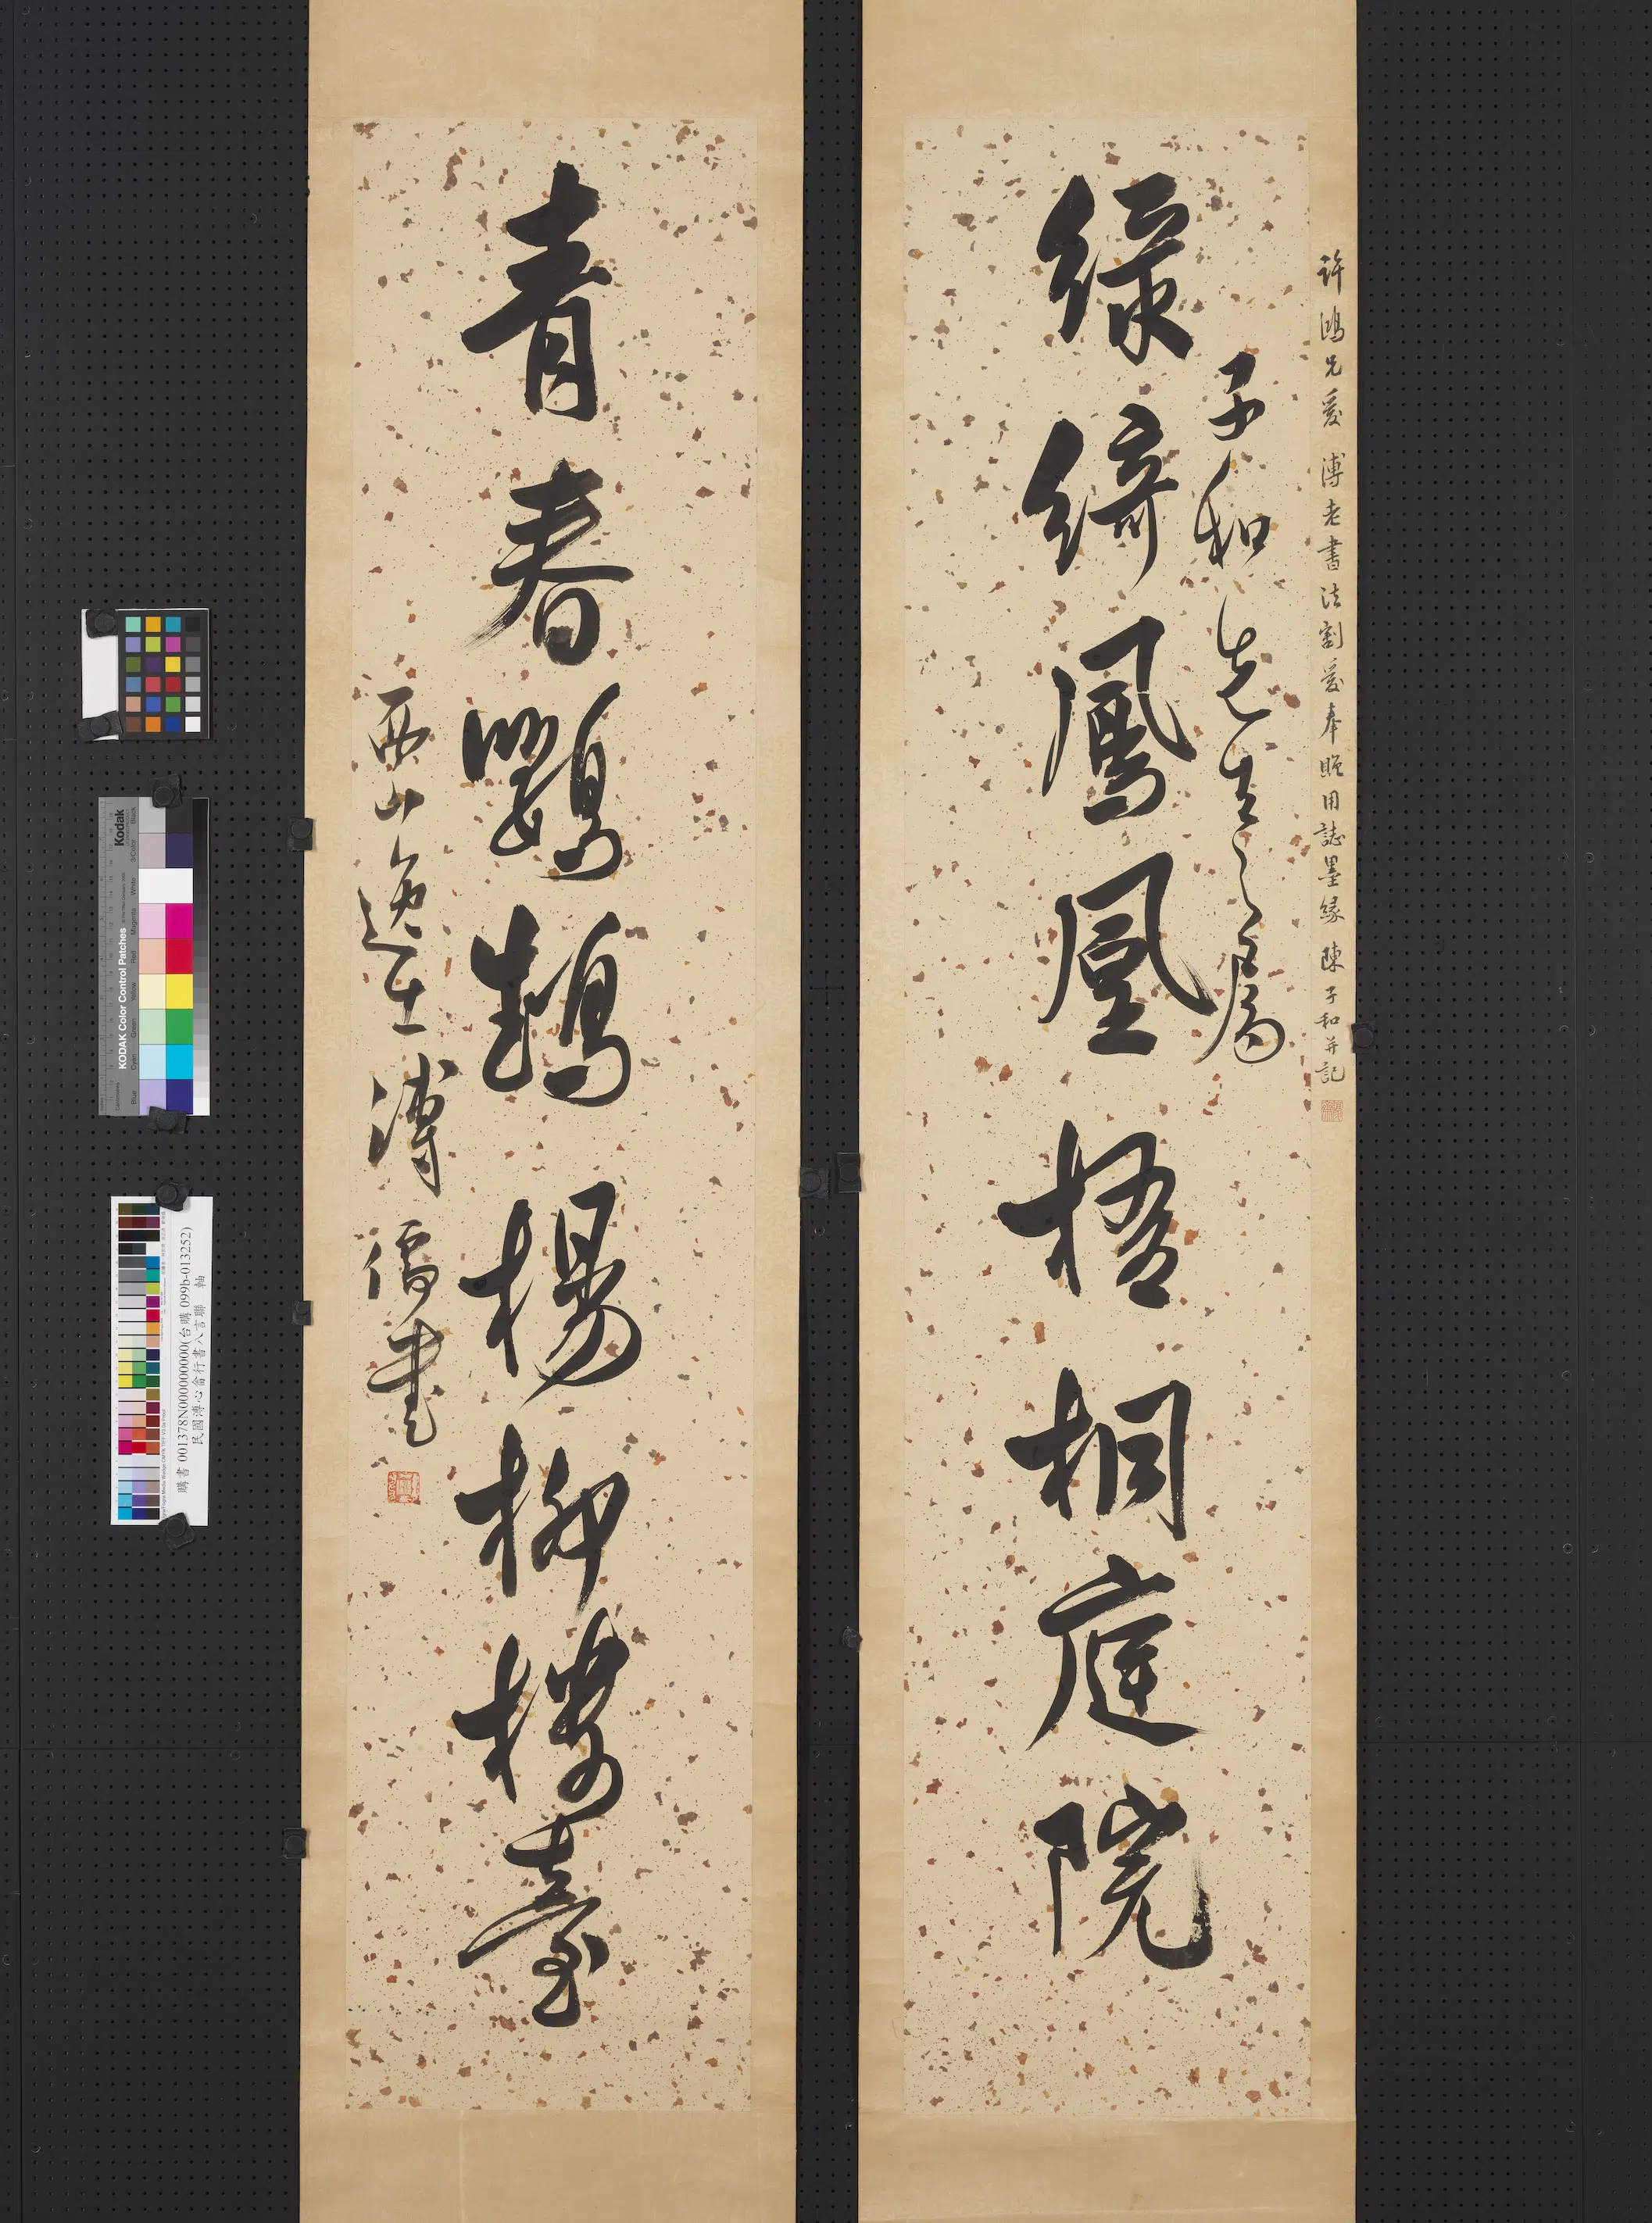 許鴻兄愛 溥老書法割愛奉贈用誌墨緣 陳子和并記
子和先生之屬
綠綺鳳凰梧桐庭院
青春鸚鵡楊柳樓臺
西山逸士溥儒書
Kodak
KODAK Color Control Patches
Blue
Cyan
Green
Yellow
Red
Magenta
White
3/Color
Black
購書 001378N000000000(台購 099b-013252)
民國溥心畬行書八言聯 軸